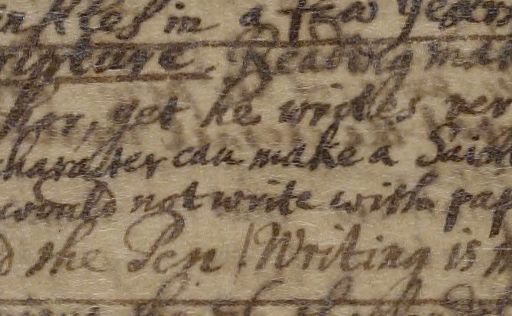 in a few years
scripture. Reading mak
hor, yet he writes ver
character can make a Saint
would not write with pap
d the Pen / Writing is m